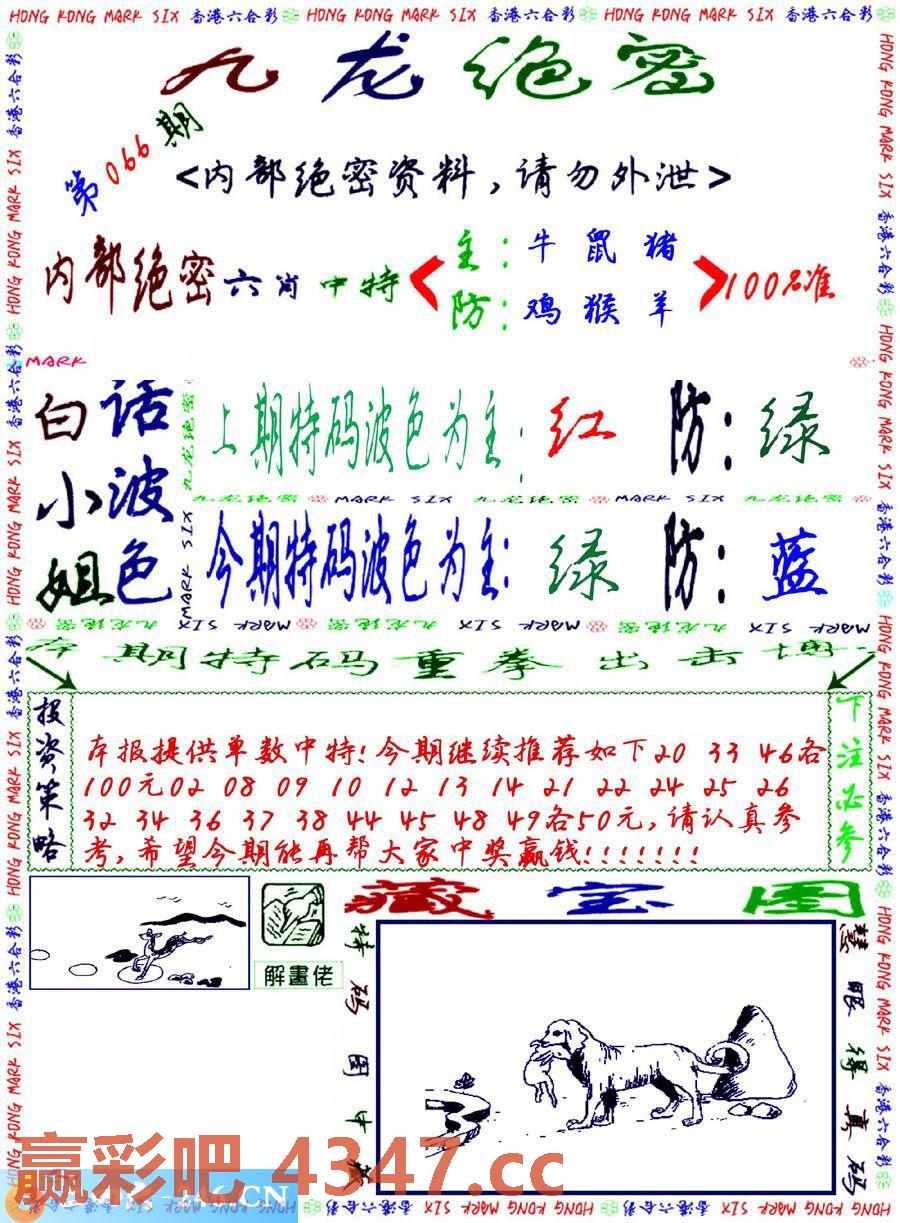 HONG KONG MARK SIX 香港六合彩 HONG KONG MARK SIX 香港六合彩 HONG KONG MARK SIX 香港六合彩
九龙绝密
第066期
<内部绝密资料,请勿外泄>
内部绝密六肖中特
主:牛鼠猪
防:鸡猴羊
100%准
MARK
白话小姐
波色
上期特码波色为主:红 防:绿
九龙绝密 MARK SIX 九龙绝密 MARK SIX 九龙绝密
今期特码波色为主:绿 防:蓝
九龙绝密 MARK SIX 九龙绝密 MARK SIX 九龙绝密 SIX MARK
本期特码重拳出击
投资策略
本报提供单数中特!今期继续推荐如下20 33 46各
100元02 08 09 10 12 13 14 21 22 24 25 26
32 34 36 37 38 44 45 48 49各50元,请认真参
考,希望今期能再帮大家中奖赢钱!!!!!!!
下注必参
解畫佬
藏宝图
特码图中
慧眼得真码
赢彩吧 4347.cc
246.CN